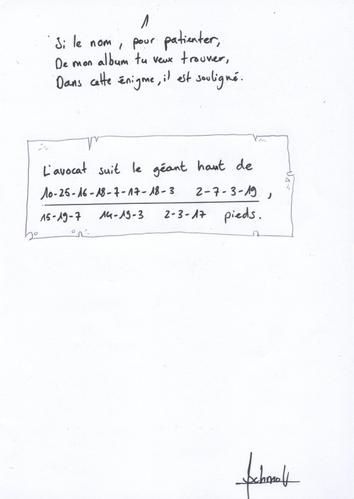 1
Si le nom, pour patienter,
De mon album tu veux trouver,
Dans cette énigme, il est souligné.
L'avocat suit le géant haut de
10-25-16-18-7-17-18-3 2-7-3-19,
15-19-7 14-19-3 2-3-17 pieds.